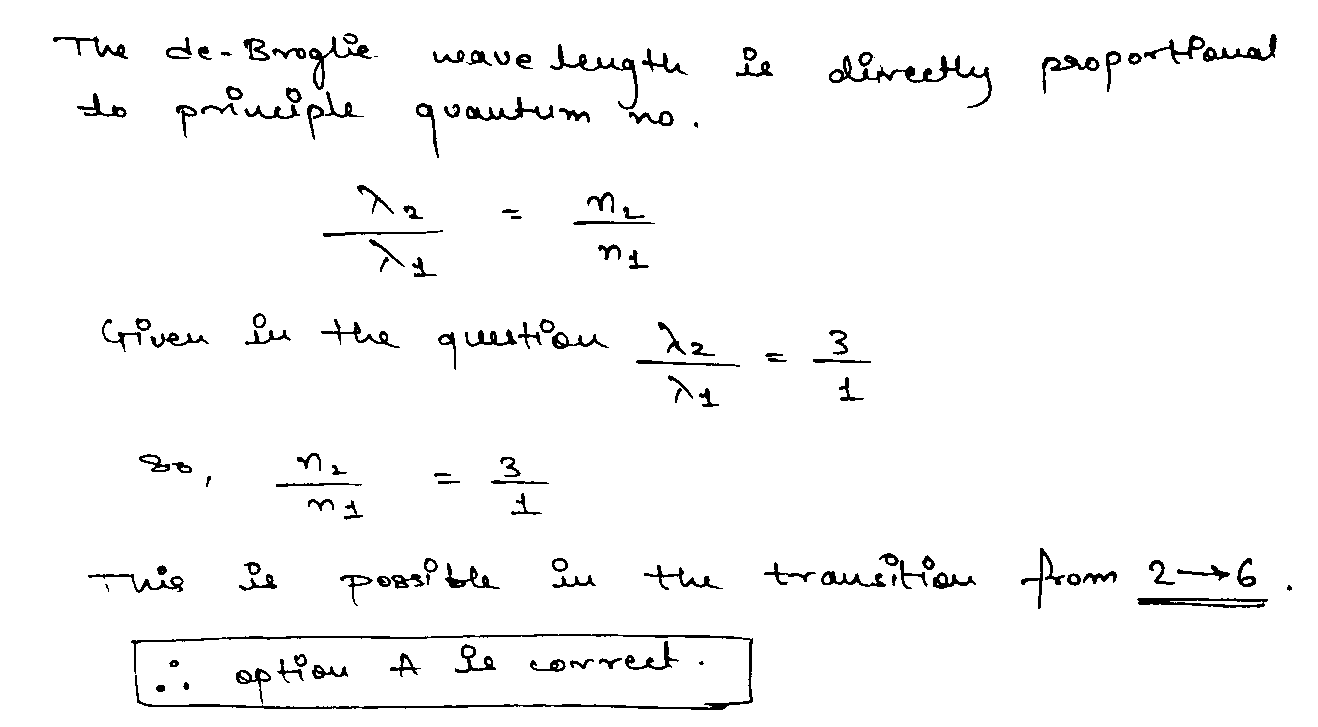 The de-Broglie wave length is directly proportional
to principle quantum no.
λ2/λ1 = n2/n1
Given in the question λ2/λ1 = 3/1
so, n2/n1 = 3/1
This is possible in the transition from 2→6.
∴ option A is correct.